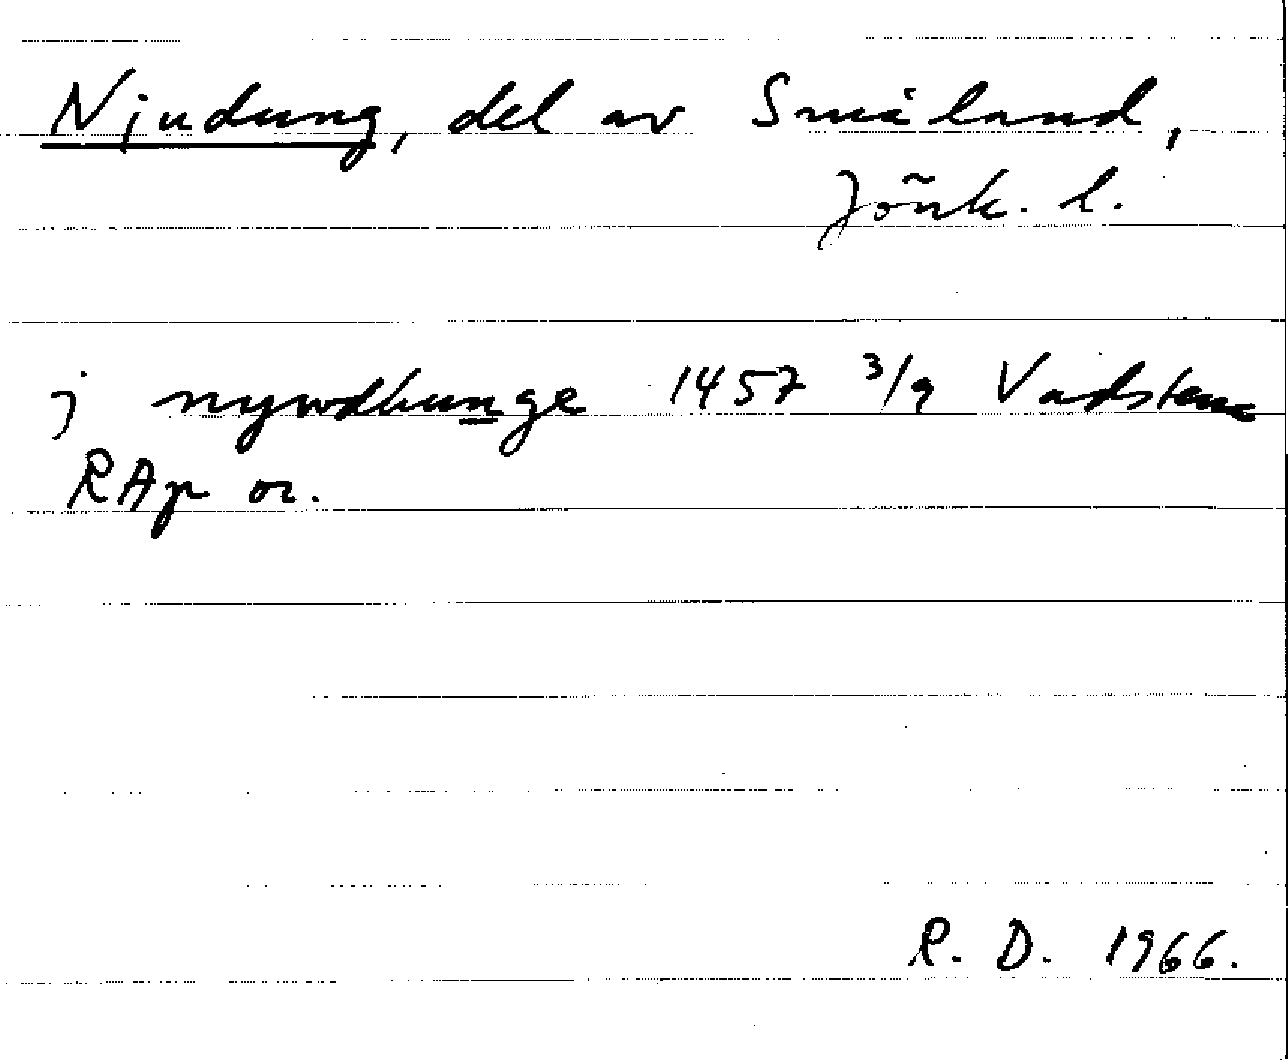 Njudung, del av Småland,
Jönk. l.
j nywdhunge 1457 3/9 Vadstena
RAp or.
R. D. 1966.